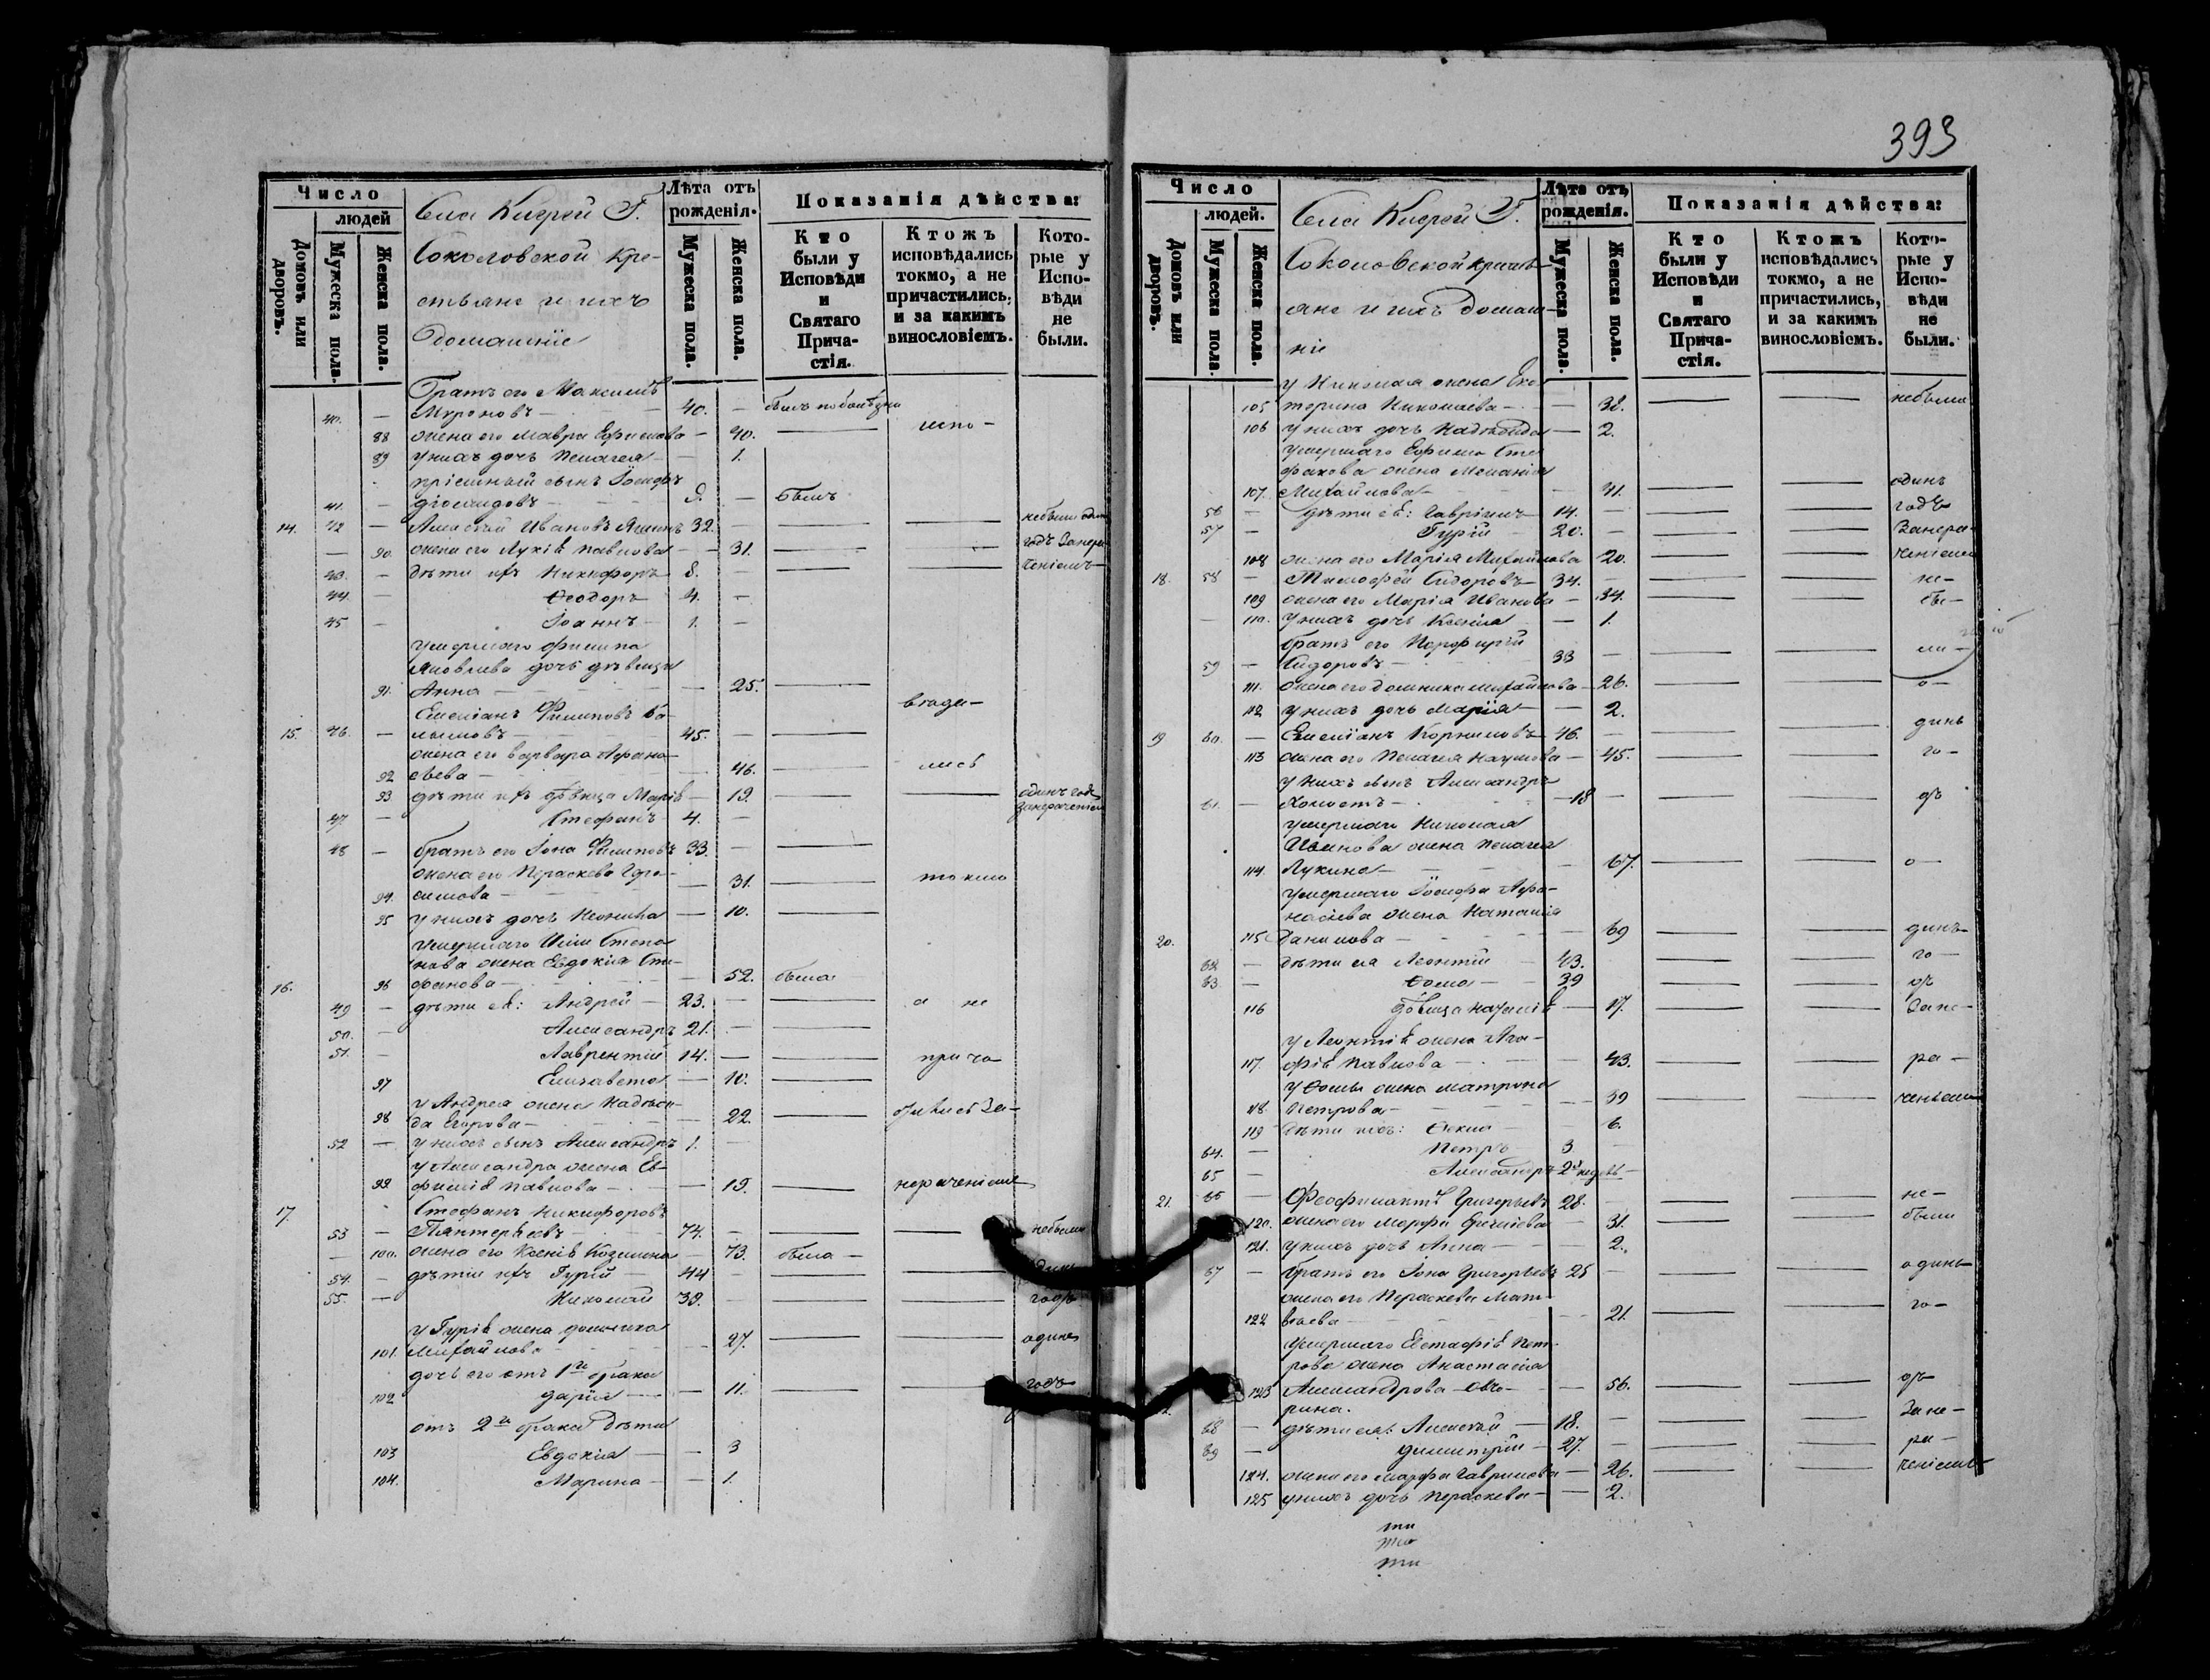 393
Число
людей
Домовъ или дворовъ.
Мужеска пола.
Женска пола.
Села Киерей Г.
Соколовской Кре-
стьяне и ихъ
домашніе
Лѣта отъ рожденія.
Мужеска пола.
Женска пола.
Показанія дѣйства:
Кто были у Исповѣди и Святаго Прича-стія.
Ктожъ исповѣдались токмо, а не причастились, и за какимъ винословіемъ.
Кото-рые у Испо-вѣди не были.
Братъ его Максимъ
40. — Мироновъ — 40. —
88 жена его Мавра Ефимова — 40. — испо-
89 у нихъ дочь Пелагея — 1.
пріемный сынъ Іосифъ
41. — 9. — былъ
14. 42 — Алексѣй Ивановъ 32. — небыли одинъ
— 90. жена его Лукія Павлова — 31. — годъ Занера-
43. — дѣти ихъ Никифоръ 8. — ченіемъ
44. — Ѳеодоръ 4. —
45 — Іоаннъ 1. —
умершаго Филипа
Яковлева дочь дѣвица
91. Анна — 25. —
Емеліанъ Филиповъ
15. 46. — 45. — вѣда-
жена его Варвара Афана-
92 сьева — 46. — лись
93. дѣти ихъ дѣвица Марія — 19. — одинъ годъ
занераченіемъ
47. — Стефанъ 4. —
48 — братъ его Іона Филиповъ 33. —
жена его Параскева Гера-
94. симова — 31. — токмо
95 у нихъ дочь Неонила — 10. —
умершаго Иліи Степа-
нова жена Евдокія Сте-
16. 96 фанова — 52. была
49 — дѣти ея: Андрей — 23. — а не
50. — Александръ 21. —
51. — Лаврентій 14. — прича
97 Елизавета — 10. —
у Андрея жена Надежи-
98 да Егорова — 22. — стились За-
52 — у нихъ сынъ Александръ 1. —
у Александра жена Ев-
99. фимія Павлова — 19. — нераченіемъ
17. Стефанъ Никифоровъ
53 — Пантерѣевъ — 74. — небыли
— 100. жена его Ксенія Козмина — 73. была —
54. — дѣти ихъ Гурій 44 —
55. — Николай 39. — годъ
у Гурія жена Домника
101. Михайлова — 27. — одинъ
дочь его отъ 1го брака
102 Дарія — 11. — годъ
отъ 2го брака дѣти
103 Евдокія — 3
104. Марина — 1.
Число
людей.
Домовъ или дворовъ.
Мужеска пола.
Женска пола.
Села Киерей Г.
Соколовской кресть-
яне и ихъ домаш-
ніе
Лѣта отъ рожденія.
Мужеска пола.
Женска пола.
Показанія дѣйства:
Кто были у Исповѣди и Святаго Прича-стія.
Ктожъ исповѣдались токмо, а не причастились, и за какимъ винословіемъ.
Кото-рые у Испо-вѣди не были.
у Николая жена Ека-
105 терина Николаева — 38. — небыли
106 у нихъ дочь Надежда — 2.
умершаго Ефима Сте-
фанова жена Меланія
107. Михайлова — 41. — одинъ
56 — дѣти ея: Гавріилъ 14. — годъ
57 — Гурій 20. — Занера-
108 жена его Марія Михайлова 20. — ченіемъ
18. 58 — Тимофей Сидоровъ 34. — не-
109 жена его Марія Иванова — 34. — бы-
110. у нихъ дочь Ксенія — 1.
братъ его Порфирій
59 — Сидоровъ — 33 — ли —
111. жена его Домника Михайлова — 26. — о-
112 у нихъ дочь Марія — 2.
19 60. — Емеліанъ Корниловъ — 46. — динъ
113 жена его Пелагея Наумова — 45. — го-
у нихъ сынъ Александръ
61. — холостъ — 18 — дъ
умершаго Николая
Иванова жена Пелагея
114. Лукина — 67. — о-
умершаго Іосифа Афа-
насіева жена Наталія
20. 115. Данилова — 69 — динъ
62 — дѣти ея Леонтій 43. — го-
63. — Ѳома — 39 — дъ
116 дѣвица Наталія — 17. — Зане-
у Леонтія жена Ага-
117. фія Павлова — 43. — ра-
у Ѳомы жена Матрона
118 Петрова — 39 — ченіемъ
119 дѣти ихъ: Ѳекла — 6.
64. — Петръ 3
65 — Александръ 2хъ недѣль
21. 66 — Феофилактъ Григорьевъ 28. — не-
120. жена его Марфа — 31. — были
121. у нихъ дочь Анна — 2.
67 — братъ его Іона Григорьевъ 25 — одинъ
жена его Параскева Мат-
122 вѣева — 21. — го-
умершаго Евстафія Пет-
рова жена Анастасія
123 Александрова Овчи- — 56. — дъ
рина.
68 — дѣти ея: Алексѣй — 18. — Зане-
69 — Димитрій — 27. — ра-
124. жена его Марфа Гаврилова — 26. — ченіемъ
125 у нихъ дочь Параскева — 2.